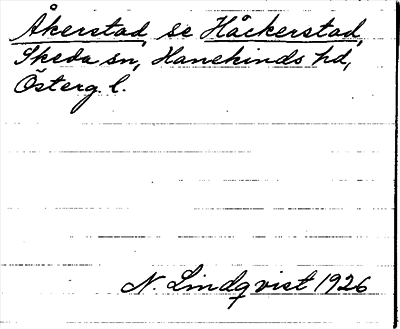 Åkerstad, se Håckerstad,
Skeda sn, Hanekinds hd,
Österg. l.
N. Lindqvist 1926